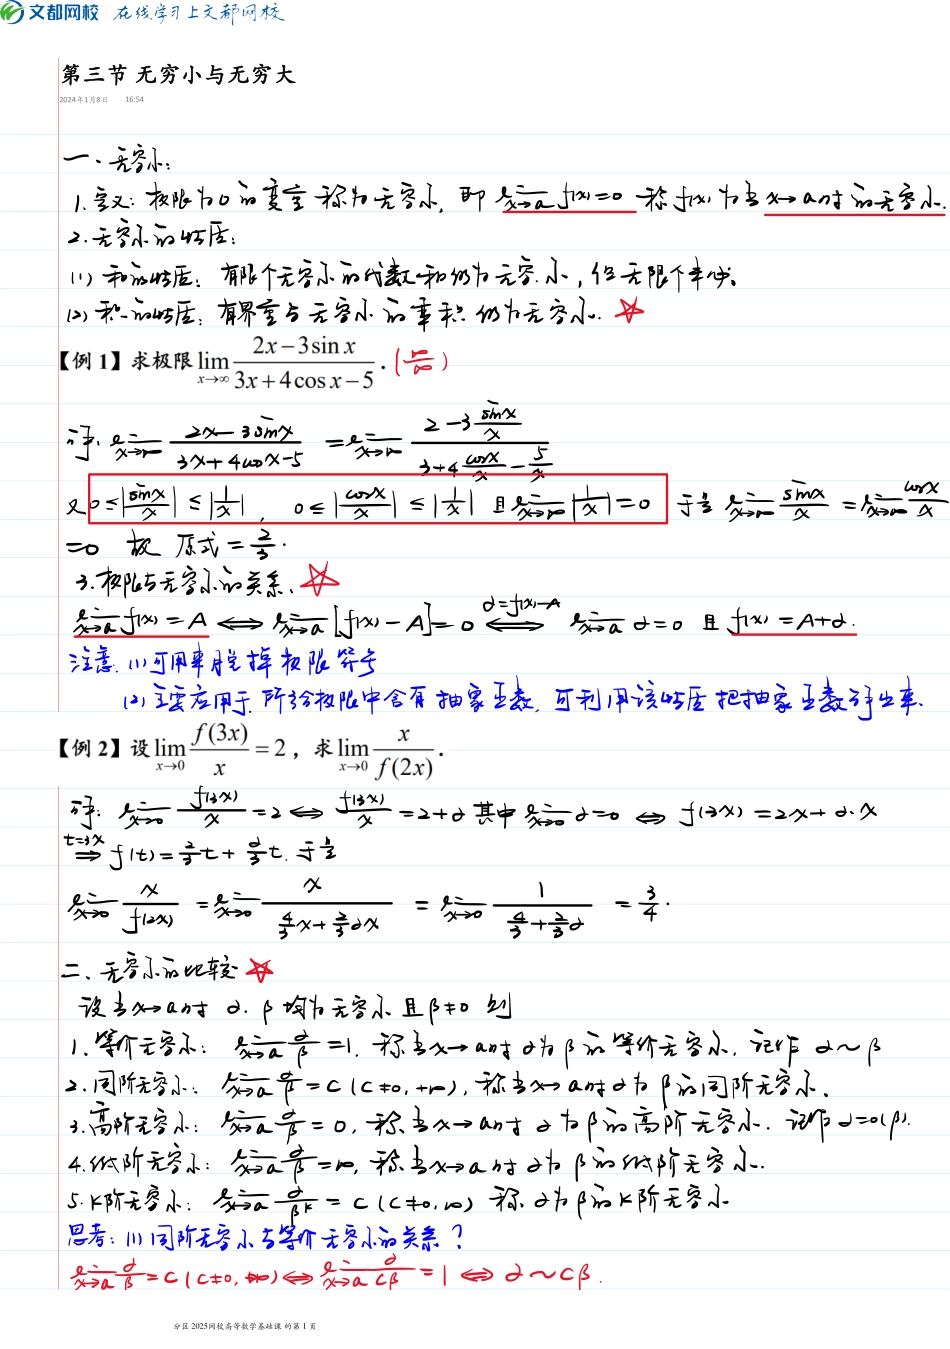 文都网校 在线学习上文都网校
第三节 无穷小与无穷大
2024年1月8日 16:54
一、无穷小:
1.定义: 极限为0的变量称为无穷小, 即 lim x→a f(x)=0 称f(x)为当x→a时的无穷小.
2.无穷小的性质:
(1) 和的性质: 有限个无穷小的代数和仍为无穷小, 但无限个未必。
(2) 积的性质: 有界量与无穷小的乘积仍为无穷小. ☆
【例 1】求极限 lim x→∞ (2x−3sin x)/(3x+4cos x−5) . (∞/∞)
解: lim x→∞ (2x−3sinx)/(3x+4cosx−5) = lim x→∞ (2−3 sinx/x)/(3+4 cosx/x − 5/x)
又 0≤|sinx/x|≤|1/x|, 0≤|cosx/x|≤|1/x| 且 lim x→∞ |1/x|=0 于是 lim x→∞ sinx/x = lim x→∞ cosx/x
=0 故 原式=2/3.
3.极限与无穷小的关系. ☆
lim x→a f(x)=A ⟺ lim x→a [f(x)−A]=0 ⟺(α=f(x)−A) lim x→a α=0 且 f(x)=A+α.
注意. (1) 可用来脱掉极限符号
(2) 主要应用于所给极限中含有抽象函数, 可利用该性质把抽象函数解出来.
【例 2】设 lim x→0 f(3x)/x = 2 , 求 lim x→0 x/f(2x) .
解: lim x→0 f(3x)/x =2 ⟺ f(3x)/x =2+α 其中 lim x→0 α=0 ⟺ f(3x)=2x+α·x
t=3x ⟹ f(t)=2/3 t+ α/3 t. 于是
lim x→0 x/f(2x) = lim x→0 x/(4/3 x+2/3 αx) = lim x→0 1/(4/3+2/3 α) = 3/4.
二、无穷小的比较 ☆
设当x→a时 α. β 均为无穷小且β≠0 则
1.等价无穷小: lim x→a α/β =1. 称当x→a时α为β的等价无穷小, 记作 α~β
2.同阶无穷小: lim x→a α/β =C (C≠0, +∞), 称当x→a时α为β的同阶无穷小.
3.高阶无穷小: lim x→a α/β =0, 称当x→a时α为β的高阶无穷小. 记作α=o(β).
4.低阶无穷小: lim x→a α/β =∞, 称当x→a时α为β的低阶无穷小.
5.K阶无穷小: lim x→a α/β^K = C (C≠0,∞) 称α为β的K阶无穷小
思考: (1) 同阶无穷小与等价无穷小的关系?
lim x→a α/β =C (C≠0, ∞) ⟺ lim x→a α/Cβ =1 ⟺ α~Cβ.
分区 2025网校高等数学基础课 的第 1 页